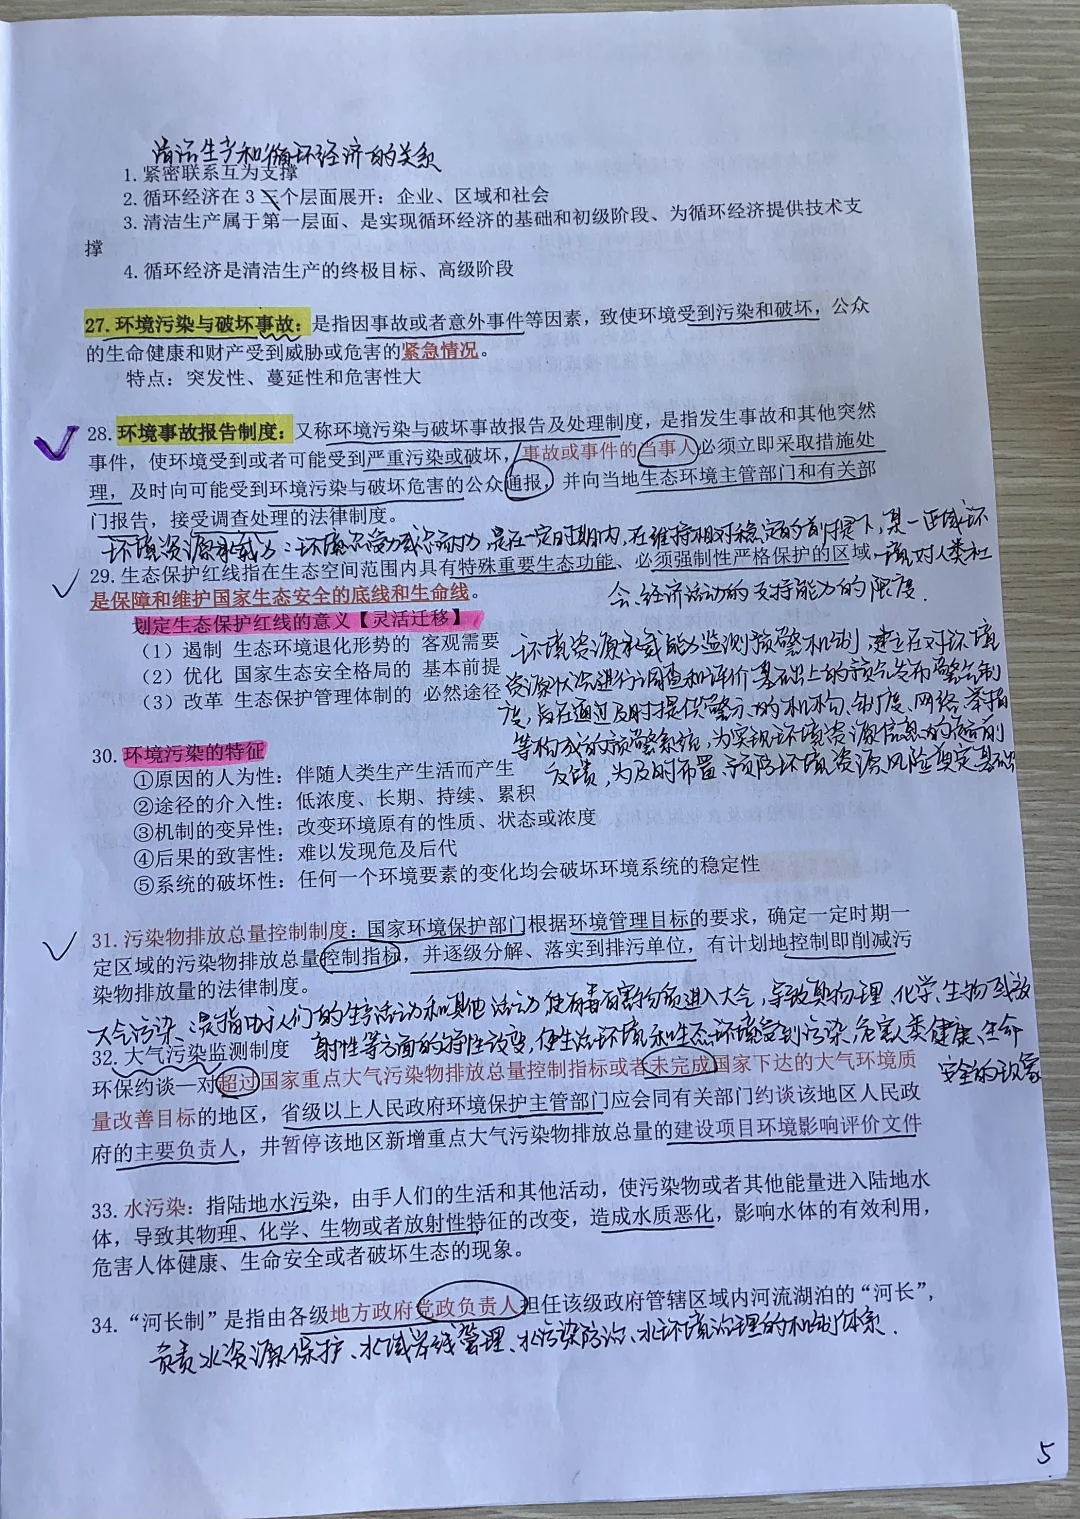 清洁生产和循环经济的关系
1.紧密联系互为支撑
2.循环经济在 3 三个层面展开：企业、区域和社会
3.清洁生产属于第一层面、是实现循环经济的基础和初级阶段、为循环经济提供技术支
撑
4.循环经济是清洁生产的终极目标、高级阶段
27.环境污染与破坏事故：是指因事故或者意外事件等因素，致使环境受到污染和破坏，公众
的生命健康和财产受到威胁或危害的紧急情况。
特点：突发性、蔓延性和危害性大
28.环境事故报告制度：又称环境污染与破坏事故报告及处理制度，是指发生事故和其他突然
事件，使环境受到或者可能受到严重污染或破坏，事故或事件的当事人必须立即采取措施处
理，及时向可能受到环境污染与破坏危害的公众通报，并向当地生态环境主管部门和有关部
门报告，接受调查处理的法律制度。
环境资源承载力：环境承受力或容耐力，是在一定时期内，在维持相对稳定的前提下，某一区域环
29.生态保护红线指在生态空间范围内具有特殊重要生态功能、必须强制性严格保护的区域
境对人类社
是保障和维护国家生态安全的底线和生命线。
会、经济活动的支持能力的限度．
划定生态保护红线的意义【灵活迁移】
（1）遏制 生态环境退化形势的 客观需要
（2）优化 国家生态安全格局的 基本前提
（3）改革 生态保护管理体制的 必然途径
环境资源承载能力监测预警机制，建立在对环境
资源状况进行调查和评价基础上的预先发布警告制
度，旨在通过及时提供警示的机构、制度、网络、举措
等构成的预警系统，为实现环境资源信息的超前
反馈，为及时布置、预防环境资源风险奠定基础
30.环境污染的特征
①原因的人为性：伴随人类生产生活而产生
②途径的介入性：低浓度、长期、持续、累积
③机制的变异性：改变环境原有的性质、状态或浓度
④后果的致害性：难以发现危及后代
⑤系统的破坏性：任何一个环境要素的变化均会破坏环境系统的稳定性
31.污染物排放总量控制制度：国家环境保护部门根据环境管理目标的要求，确定一定时期一
定区域的污染物排放总量控制指标，并逐级分解、落实到排污单位，有计划地控制即削减污
染物排放量的法律制度。
大气污染：是指由于人们的生活活动和其他活动使有毒有害物质进入大气，导致其物理、化学、生物或放
射性等方面的特性改变，使生活环境和生态环境受到污染，危害人类健康、生命
安全的现象
32.大气污染监测制度
环保约谈—对超过国家重点大气污染物排放总量控制指标或者未完成国家下达的大气环境质
量改善目标的地区，省级以上人民政府环境保护主管部门应会同有关部门约谈该地区人民政
府的主要负责人，井暂停该地区新增重点大气污染物排放总量的建设项目环境影响评价文件
33.水污染：指陆地水污染，由手人们的生活和其他活动，使污染物或者其他能量进入陆地水
体，导致其物理、化学、生物或者放射性特征的改变，造成水质恶化，影响水体的有效利用，
危害人体健康、生命安全或者破坏生态的现象。
34.“河长制”是指由各级地方政府党政负责人担任该级政府管辖区域内河流湖泊的“河长”，
负责水资源保护、水域岸线管理、水污染防治、水环境治理的机制体系．
5